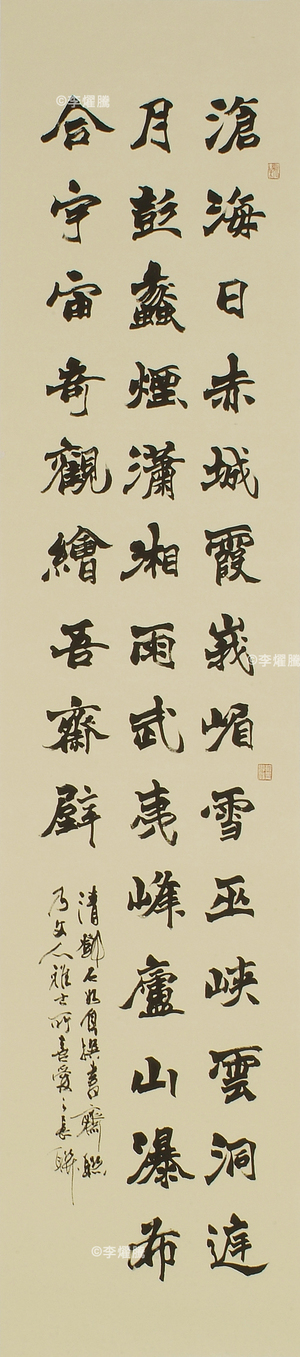 滄海日赤城霞峩嵋雪巫峽雲洞庭
月彭蠡煙瀟湘雨武夷峰廬山瀑布
合宇宙奇觀繪吾齋壁
清鄧石如自撰書齋聯
乃文人雅士所喜愛之長聯
©李燿騰
©李燿騰
©李燿騰